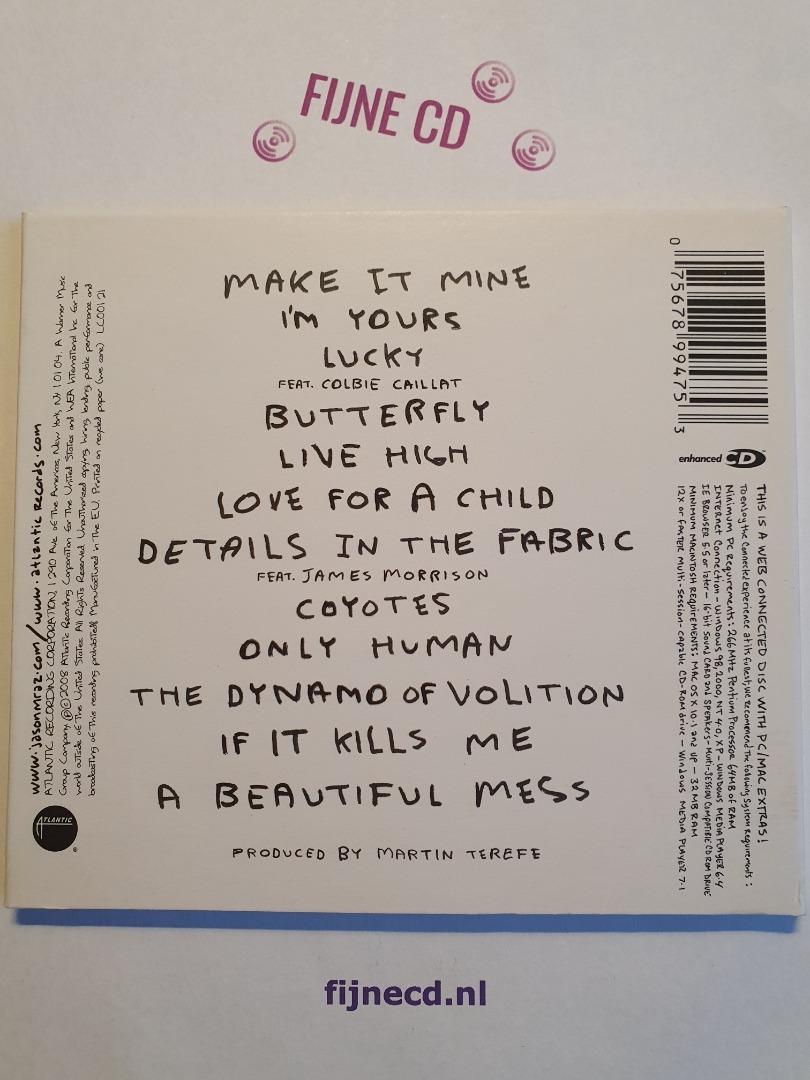 FIJNE CD
MAKE IT MINE
I'M YOURS
LUCKY
FEAT. COLBIE CAILLAT
BUTTERFLY
LIVE HIGH
LOVE FOR A CHILD
DETAILS IN THE FABRIC
FEAT. JAMES MORRISON
COYOTES
ONLY HUMAN
THE DYNAMO OF VOLITION
IF IT KILLS ME
A BEAUTIFUL MESS
PRODUCED BY MARTIN TEREFE
www.jasonmraz.com/www.atlantic records.com
ATLANTIC RECORDING CORPORATION, 1290 Ave of The Americas, New York, NY 10104. A Warner Music
Group Company ℗©2008 Atlantic Recording Corporation for The United States and WEA International Inc for The
world outside of The United States. All Rights Reserved. Unauthorized copying, hiring, lending, public performance and
broadcasting of This recording prohibited. Manufactured in The E.U. Printed on recycled paper (we care) LC00121
ATLANTIC
®
0 75678 99475 3
enhanced CD
THIS IS A WEB CONNECTED DISC WITH PC/MAC EXTRAS!
To enjoy the connected experience at its fullest, we recommend the following System Requirements:
Minimum PC Requirements: 266MHz Pentium Processor 64MB of RAM
INTERNET Connection - WINDOWS 98, 2000, NT 4.0, XP - WINDOWS MEDIA PLAYER 6.4
IE BROWSER 5.5 or later - 16-bit SOUND CARD and SPEAKERS - MULTI-SESSION COMPATIBLE CD ROM DRIVE
MINIMUM MACINTOSH REQUIREMENTS: MAC OS X 10.1 and up - 32 MB RAM
12X or FASTER Multi-session-capable CD-ROM drive - WINDOWS MEDIA PLAYER 7.1
fijnecd.nl